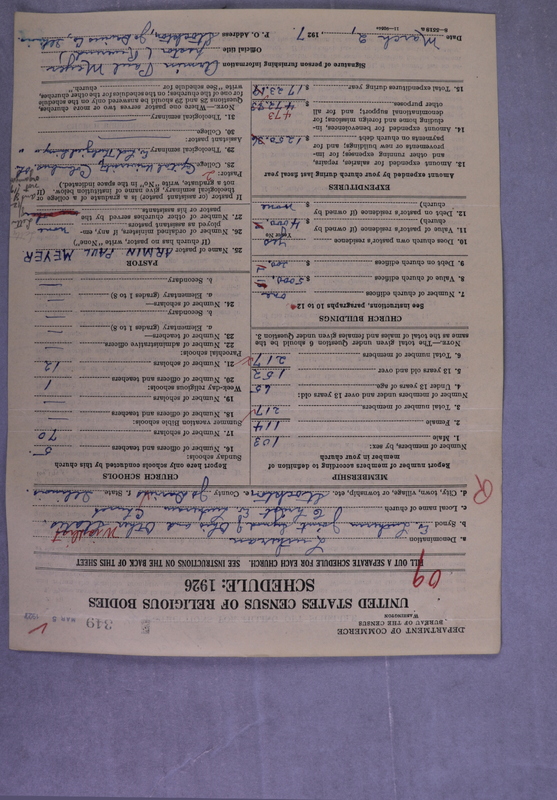 DEPARTMENT OF COMMERCE
BUREAU OF THE CENSUS
WASHINGTON
349
MAR 5 1927
UNITED STATES CENSUS OF RELIGIOUS BODIES
SCHEDULE: 1926
09
FILL OUT A SEPARATE SCHEDULE FOR EACH CHURCH. SEE INSTRUCTIONS ON THE BACK OF THIS SHEET
a. Denomination Lutheran
b. Synod Ev. Lutheran Joint Synod, Ohio and Other States
c. Local name of church Ev. Lutheran Church
d. City, town, village, or township, etc. Stockton County Jo Daviess State Illinois
MEMBERSHIP
Report number of members according to definition of
member in your church
Number of members, by sex:
1. Male 103
2. Female 114
3. Total number of members 217
Number of members under and over 13 years old:
4. Under 13 years of age 65
5. 13 years old and over 152
6. Total number of members 217
NOTE.—The total given under Question 6 should be the
same as the total of males and females given under Question 3.
CHURCH BUILDINGS
See instructions, paragraphs 10 to 12
7. Number of church edifices one
8. Value of church edifices $ 5000.
9. Debt on church edifices $ 300.
10. Does church own pastor's residence yes
Yes or No
11. Value of pastor's residence (if owned by
church) $ 4000.
12. Debt on pastor's residence (if owned by
church) $ none
EXPENDITURES
Amount expended by your church during last fiscal year
13. Amount expended for salaries, repairs,
and other running expenses; for im-
provements or new buildings; and for
payments on church debt $ 1250.36
14. Amount expended for benevolences, in-
cluding home and foreign missions; for
denominational support; and for all
other purposes $ 472.83
473
15. Total expenditures during year $ 1723.19
CHURCH SCHOOLS
Report here only schools conducted by this church
Sunday schools:
16. Number of officers and teachers 5
17. Number of scholars 70
Summer vacation Bible schools:
18. Number of officers and teachers —
19. Number of scholars —
Week-day religious schools:
20. Number of officers and teachers 1
21. Number of scholars 12
Parochial schools:
22. Number of administrative officers —
23. Number of teachers—
a. Elementary (grades 1 to 8) —
b. Secondary —
24. Number of scholars—
a. Elementary (grades 1 to 8) —
b. Secondary —
PASTOR
25. Name of pastor ARMIN PAUL MEYER
(If church has no pastor, write "None")
26. Number of assistant ministers, if any, em-
ployed as assistant pastors none
27. Number of other churches served by the
pastor or his assistants
If pastor (or assistant pastor) is a graduate of a college or a
theological seminary, give name of institution below. (If
not a graduate, write "No" in the space indicated.)
Pastor:
28. College Capital University Columbus
29. Theological seminary Ev. Luth
Assistant pastor:
30. College
31. Theological seminary
NOTE.—Where one pastor serves two or more churches,
Questions 28 and 29 should be answered only on the schedule
for one of the churches; on the schedules for the other churches,
write "See schedule for church."
Signature of person furnishing information Armin Paul Meyer
Official title Pastor
P. O. Address Stockton, Jo Daviess Co., Illinois
Date March 2, 1927